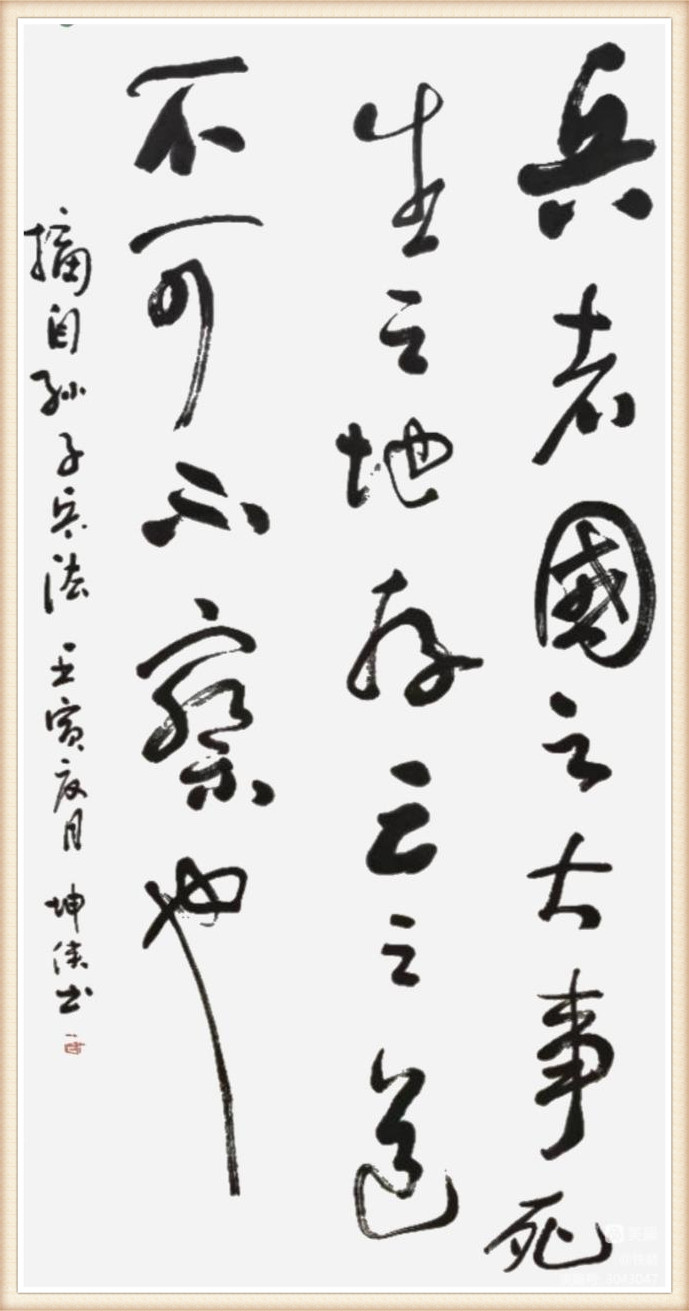 兵者國之大事死
生之地存亡之道
不可不察也
摘自孙子兵法 壬寅夜月 坤侠书